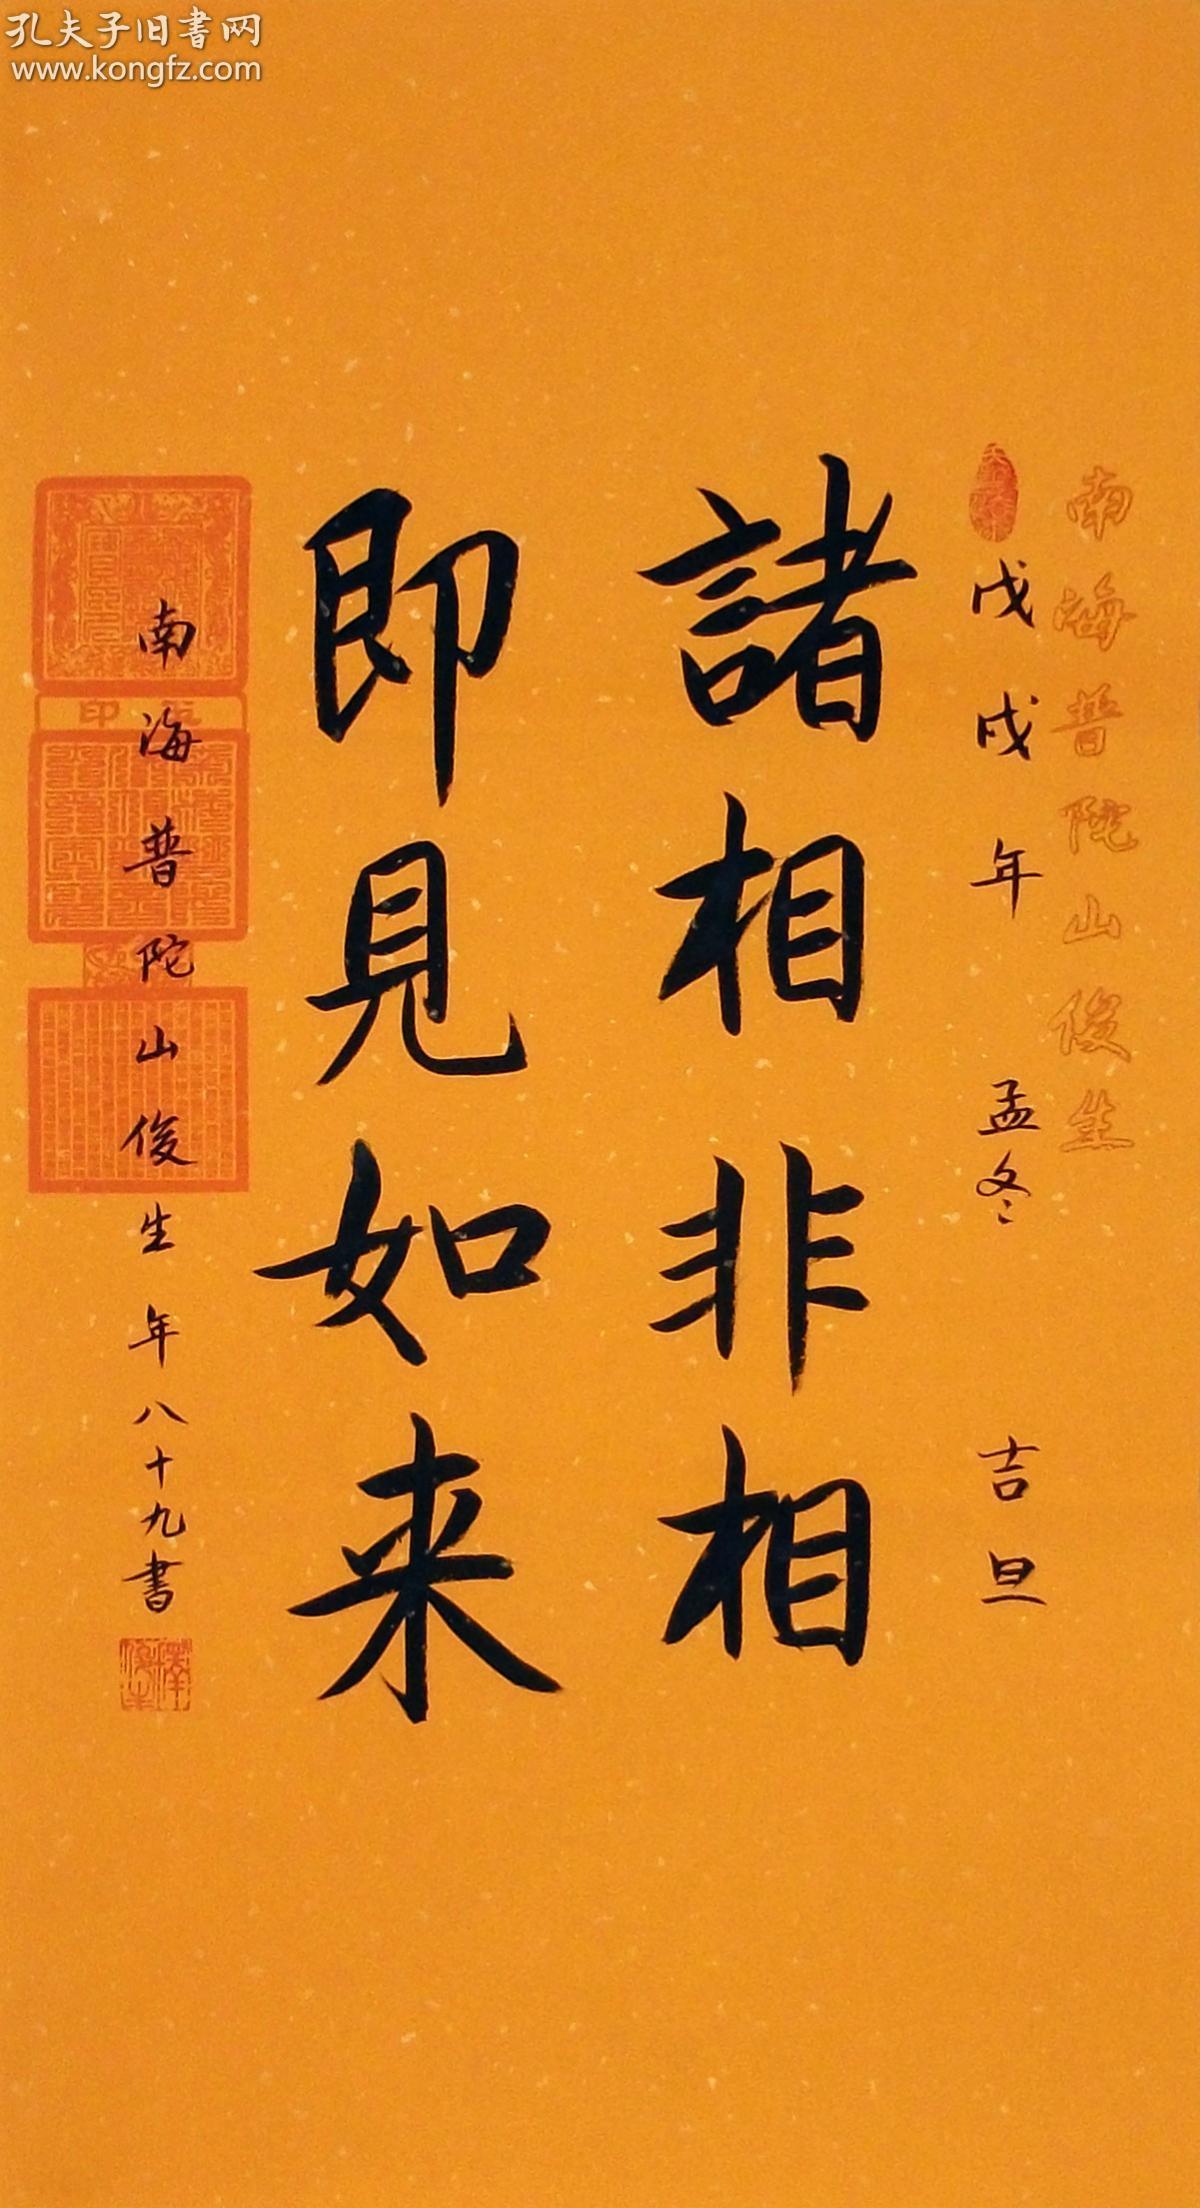 孔夫子旧書网
www.kongfz.com
南海普陀山俊生
戊戌年 孟冬 吉旦
諸相非相
即見如来
南海普陀山俊生年八十九書